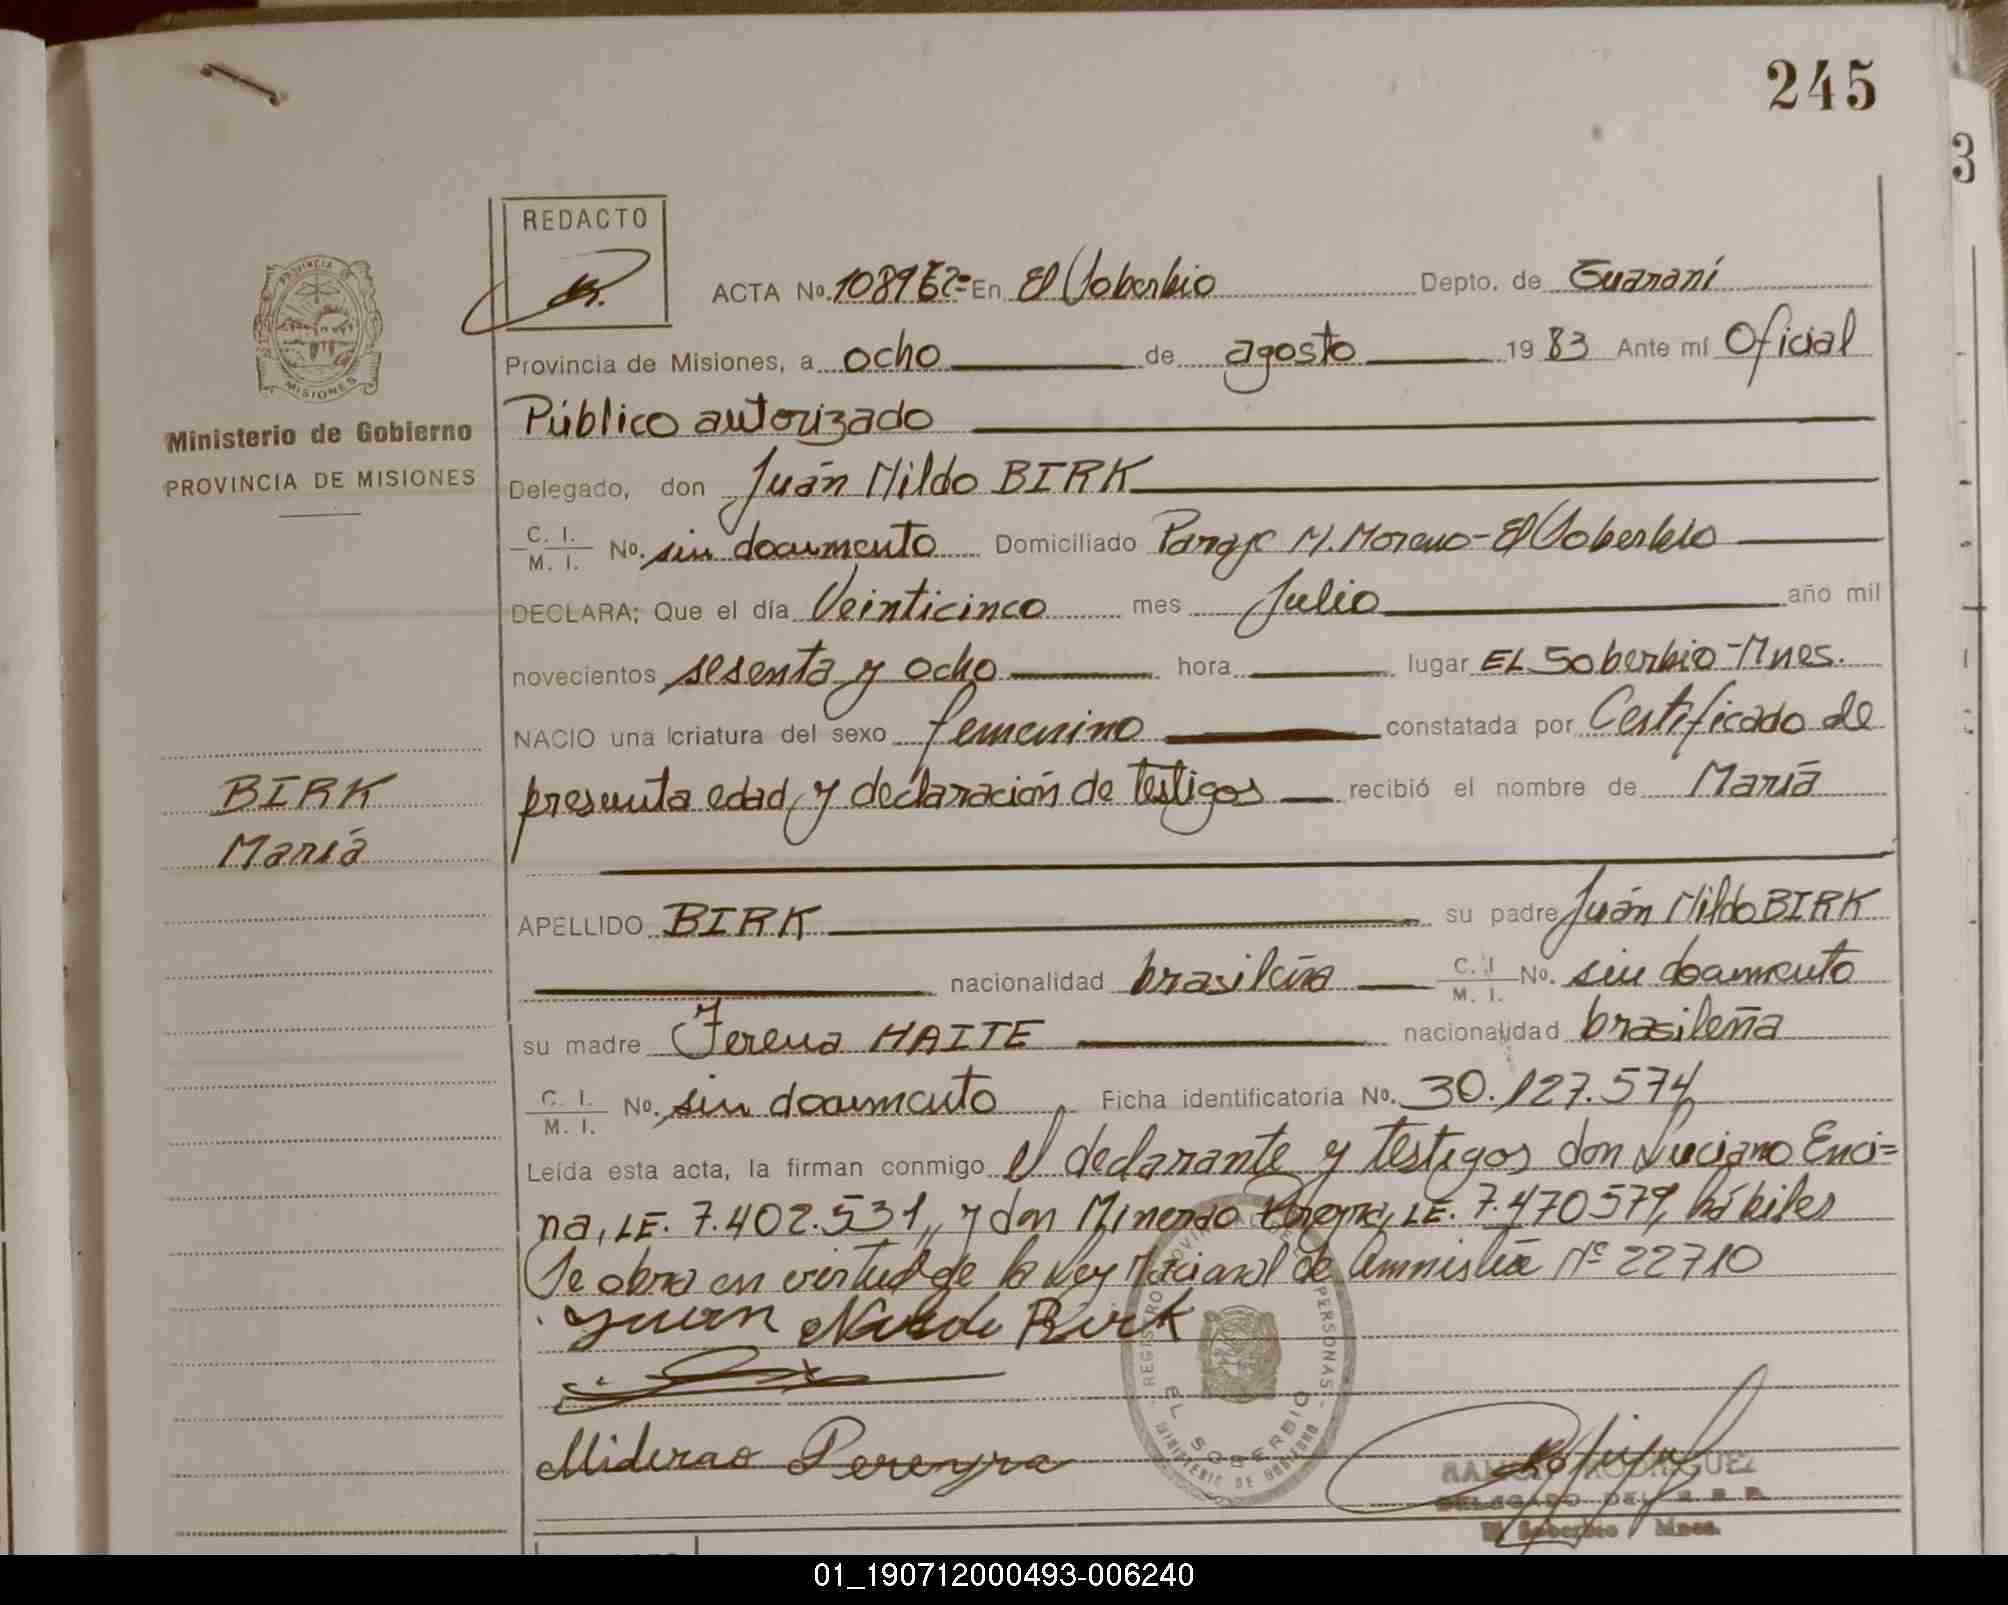 245
3
REDACTO
PROVINCIA DE
MISIONES
Ministerio de Gobierno
PROVINCIA DE MISIONES
ACTA No. En El Soberbio Depto. de Guaraní
Provincia de Misiones, a ocho de agosto 1983 Ante mí Oficial
Público autorizado
Delegado, don Juán Nildo BIRK
C. I.
M. I. No. sin documento Domiciliado Paraje M. Moreno - El Soberbio
DECLARA; Que el día Veinticinco mes Julio año mil
novecientos sesenta y ocho hora lugar EL Soberbio - Mnes.
NACIO una criatura del sexo femenino constatada por Certificado de
presunta edad y declaración de testigos recibió el nombre de María
BIRK
María
APELLIDO BIRK su padre Juán Nildo BIRK
nacionalidad brasileña C. I. M. I. No. sin documento
su madre HAITE nacionalidad brasileña
C. I.
M. I. No. sin documento, Ficha identificatoria No. 30.127.574
Leída esta acta, la firman conmigo el declarante y testigos don Luciano Enci=
na, LE. 7.402.531, y don Pereyra, LE. 7.470579, hábiles
Se obra en virtud de la Ley Nacional de Amnistía Nº 22710
Juan Nildo Birk
REGISTRO PROVINCIAL DE PERSONAS
EL SOBERBIO
MINISTERIO DE GOBIERNO
Miderao Pereyra
RAMON RODRIGUEZ
DELEGADO DEL R. P. P.
El Soberbio Mnes.
01_190712000493-006240